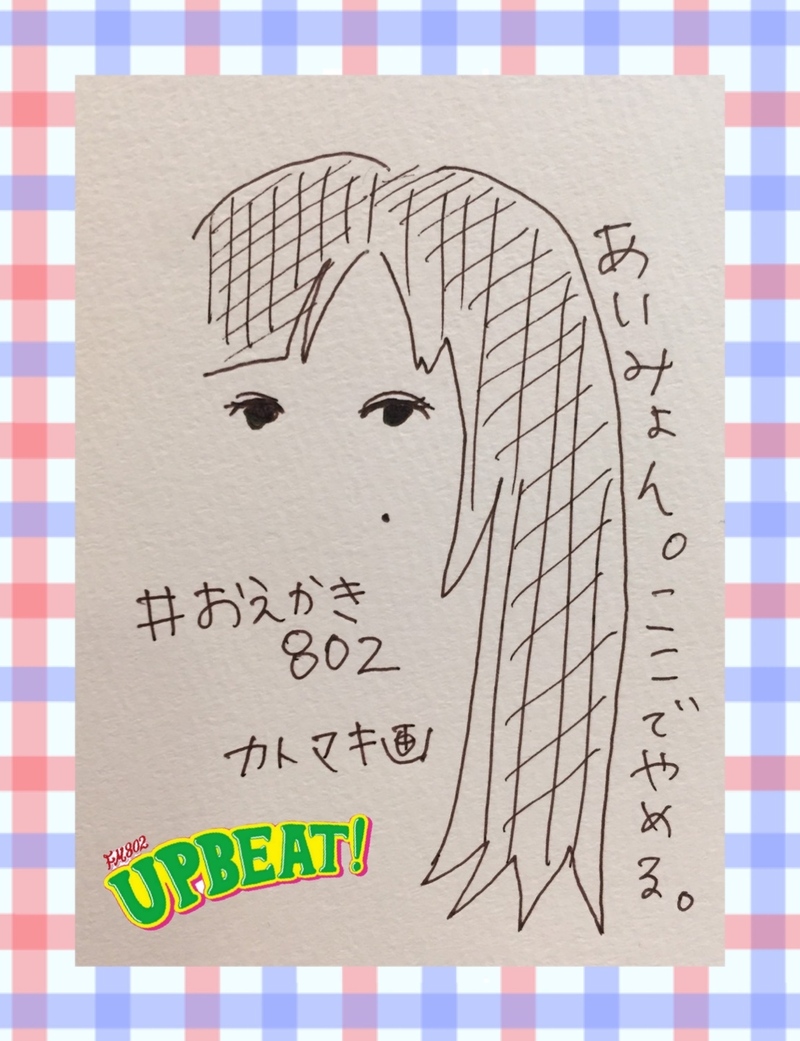 あいみょん。ここでやめる。
#おえかき
802
カトマキ画
FM802
UPBEAT!